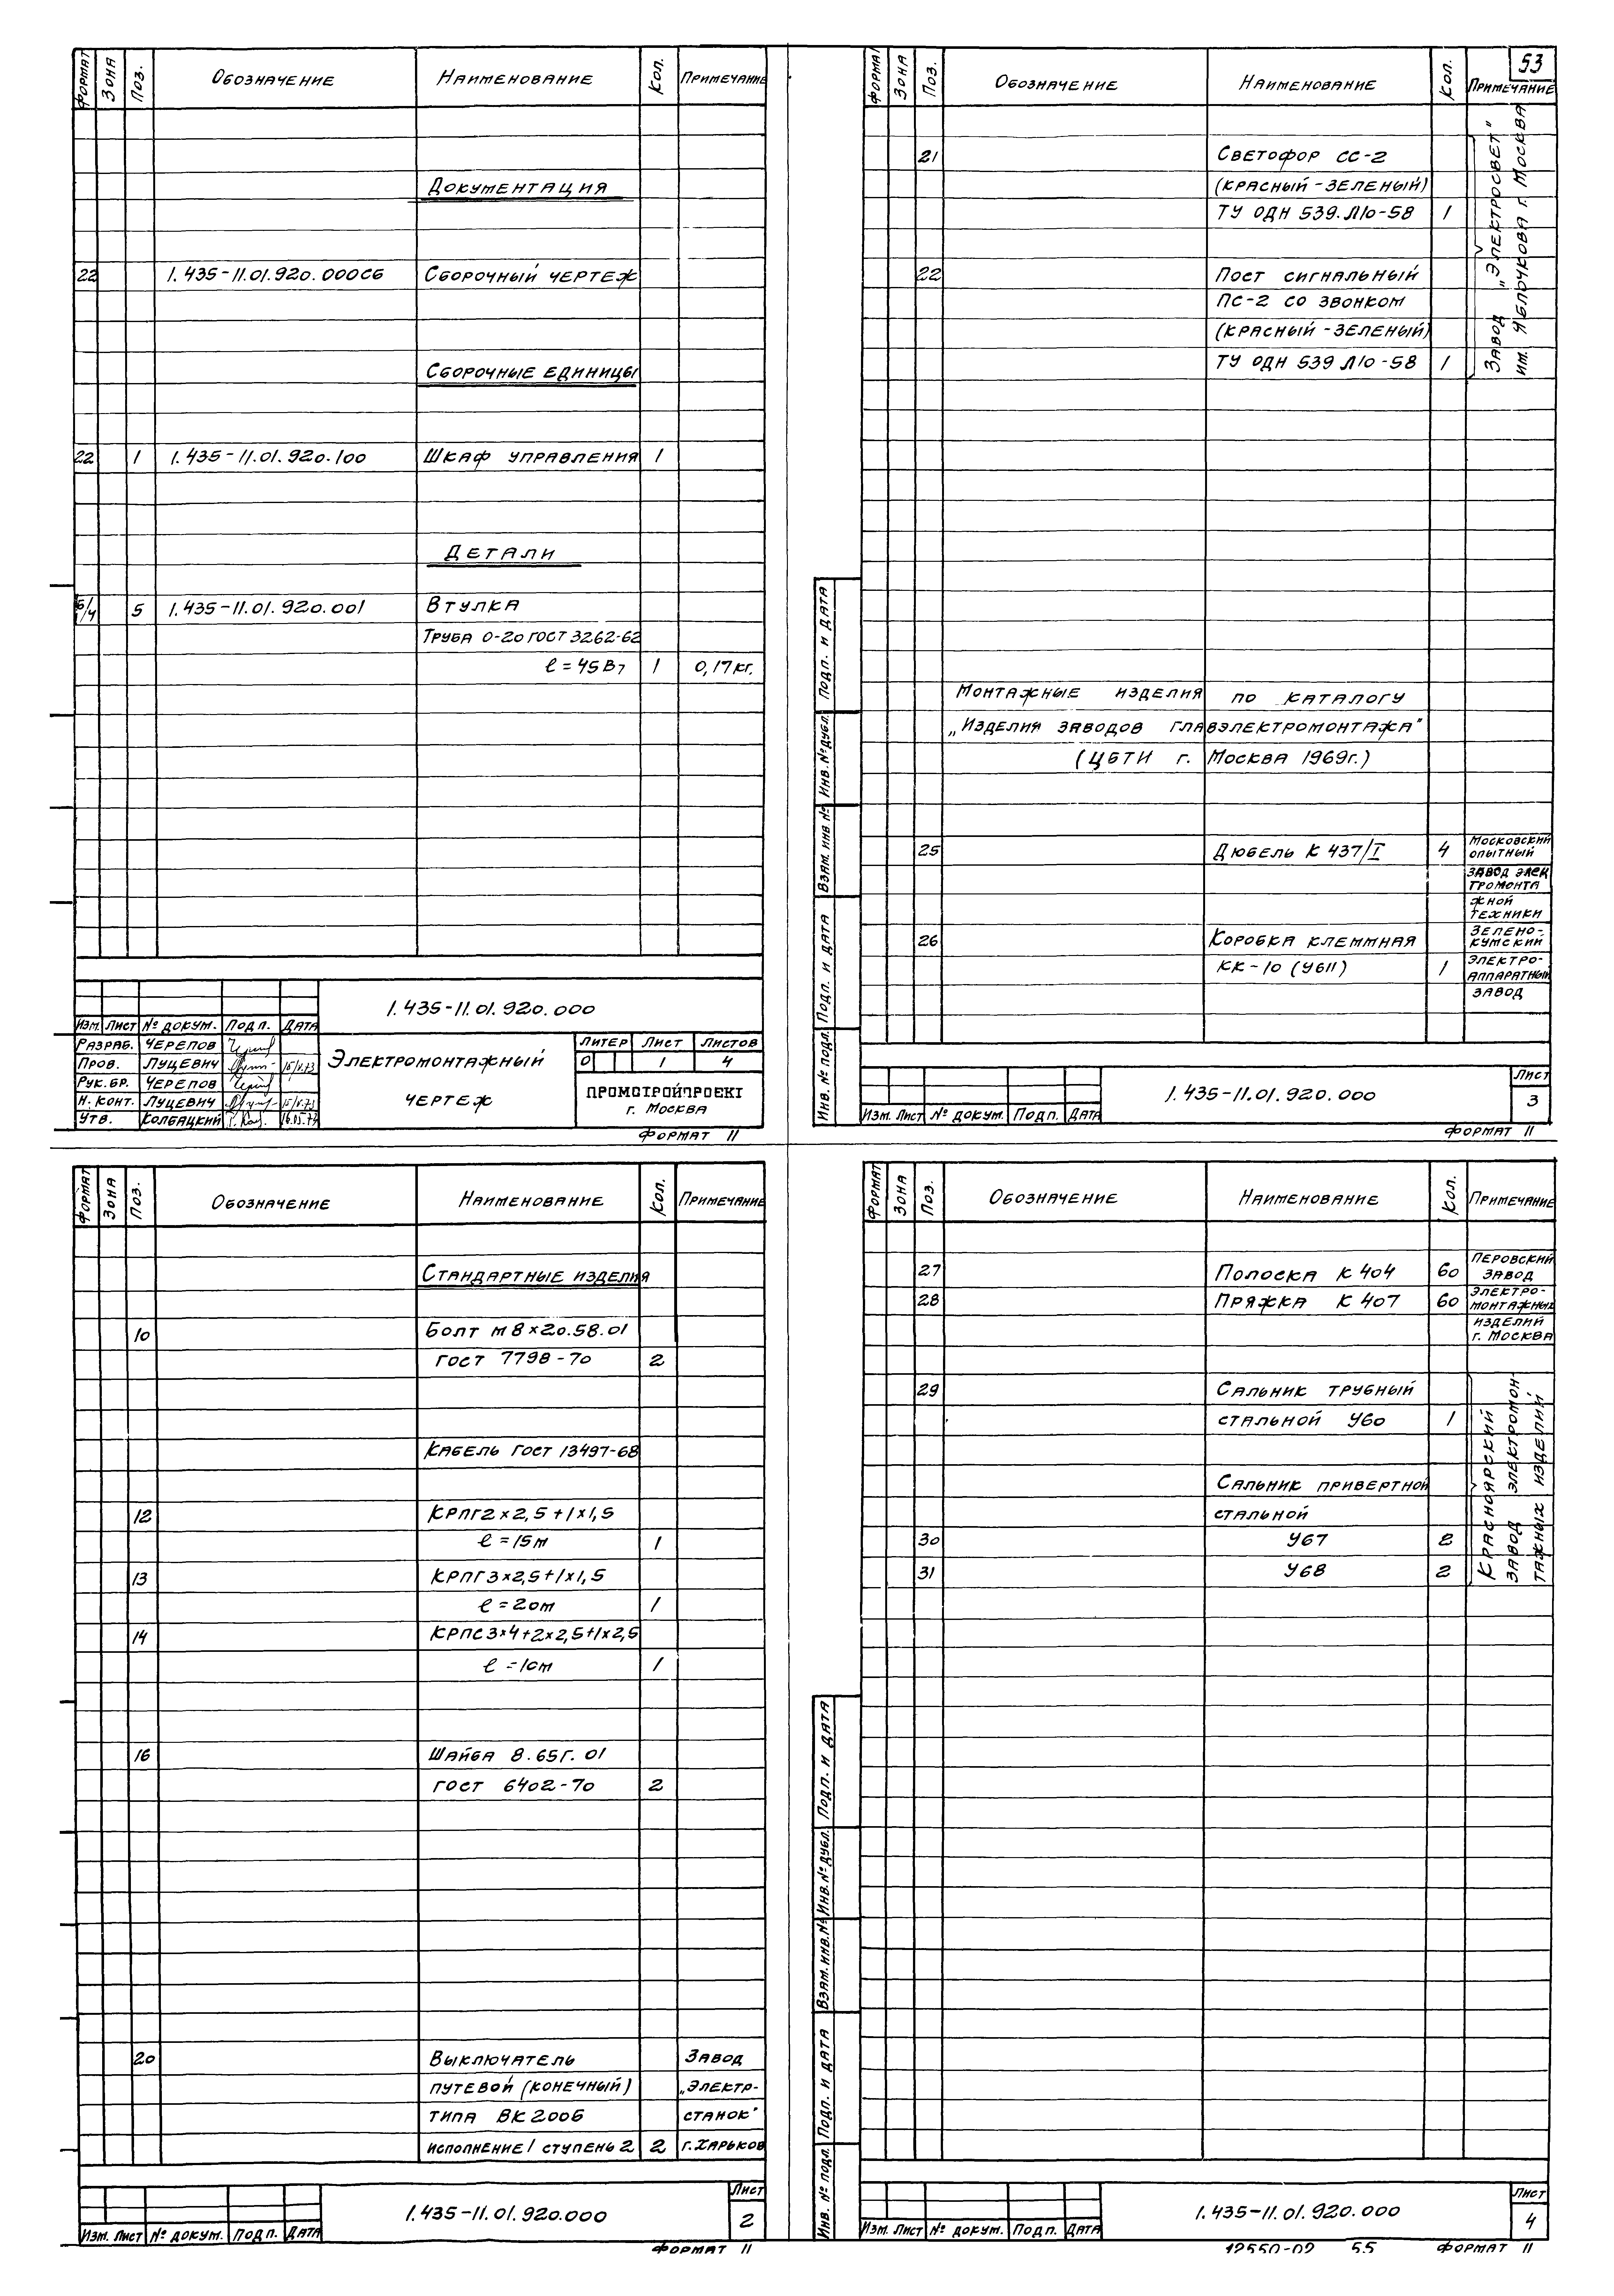 Формат Зона Поз. Обозначение Наименование Кол. Примечание
Документация
22 1.435-11.01.920.000СБ Сборочный чертеж
Сборочные единицы
22 1 1.435-11.01.920.100 Шкаф управления 1
Детали
Б/Ч 5 1.435-11.01.920.001 Втулка
Труба О-20 ГОСТ 3262-62
ℓ=45В7 1 0,17кг.
1.435-11.01.920.000
Изм. Лист № докум. Подп. Дата
Разраб. Черепов
Пров. Луцевич
Рук.бр. Черепов
Н.конт. Луцевич
Утв. Колбацкий
Электромонтажный
чертеж
Литер Лист Листов
О 1 4
ПРОМСТРОЙПРОЕКТ
г. Москва
Формат 11
53
Формат Зона Поз. Обозначение Наименование Кол. Примечание
21 Светофор СС-2
(красный-зеленый)
ТУ ОДН 539.Л10-58 1
22 Пост сигнальный
ПС-2 со звонком
(красный-зеленый)
ТУ ОДН 539 Л10-58 1
Завод „Электросвет"
им. Яблочкова г. Москва
Монтажные изделия по каталогу
„Изделия заводов Главэлектромонтажа"
(ЦБТИ г. Москва 1969г.)
25 Дюбель К 437/I 4
Московский
опытный
завод элек
тромонта
жной
техники
26 Коробка клеммная
КК-10 (У611) 1
Зелено-
кумский
электро-
аппаратный
завод
Инв. № подл. Подп. и дата Взам. инв № Инв. № дубл. Подп. и дата
Изм. Лист № докум. Подп. Дата
1.435-11.01.920.000
Лист
3
Формат 11
Формат Зона Поз. Обозначение Наименование Кол. Примечание
Стандартные изделия
10 Болт М8×20.58.01
ГОСТ 7798-70 2
Кабель ГОСТ 13497-68
12 КРПГ2×2,5+1×1,5
ℓ=15м 1
13 КРПГ3×2,5+1×1,5
ℓ=20м 1
14 КРПС3×4+2×2,5+1×2,5
ℓ=10м 1
16 Шайба 8.65Г.01
ГОСТ 6402-70 2
20 Выключатель Завод
путевой (конечный) „Электр-
типа ВК200Б станок"
исполнение 1 ступень 2 2 г.Харьков
Изм. Лист № докум. Подп. Дата
1.435-11.01.920.000
Лист
2
Формат 11
Формат Зона Поз. Обозначение Наименование Кол. Примечание
27 Полоска К404 60
28 Пряжка К407 60
Перовский
завод
электро-
монтажных
изделий
г. Москва
29 Сальник трубный
стальной У60 1
Сальник привертной
стальной
30 У67 2
31 У68 2
Красноярский
завод электромон-
тажных изделий
Инв. № подл. Подп. и дата Взам. инв. № Инв. № дубл. Подп. и дата
Изм. Лист № докум. Подп. Дата
1.435-11.01.920.000
Лист
4
12550-02 55
Формат 11